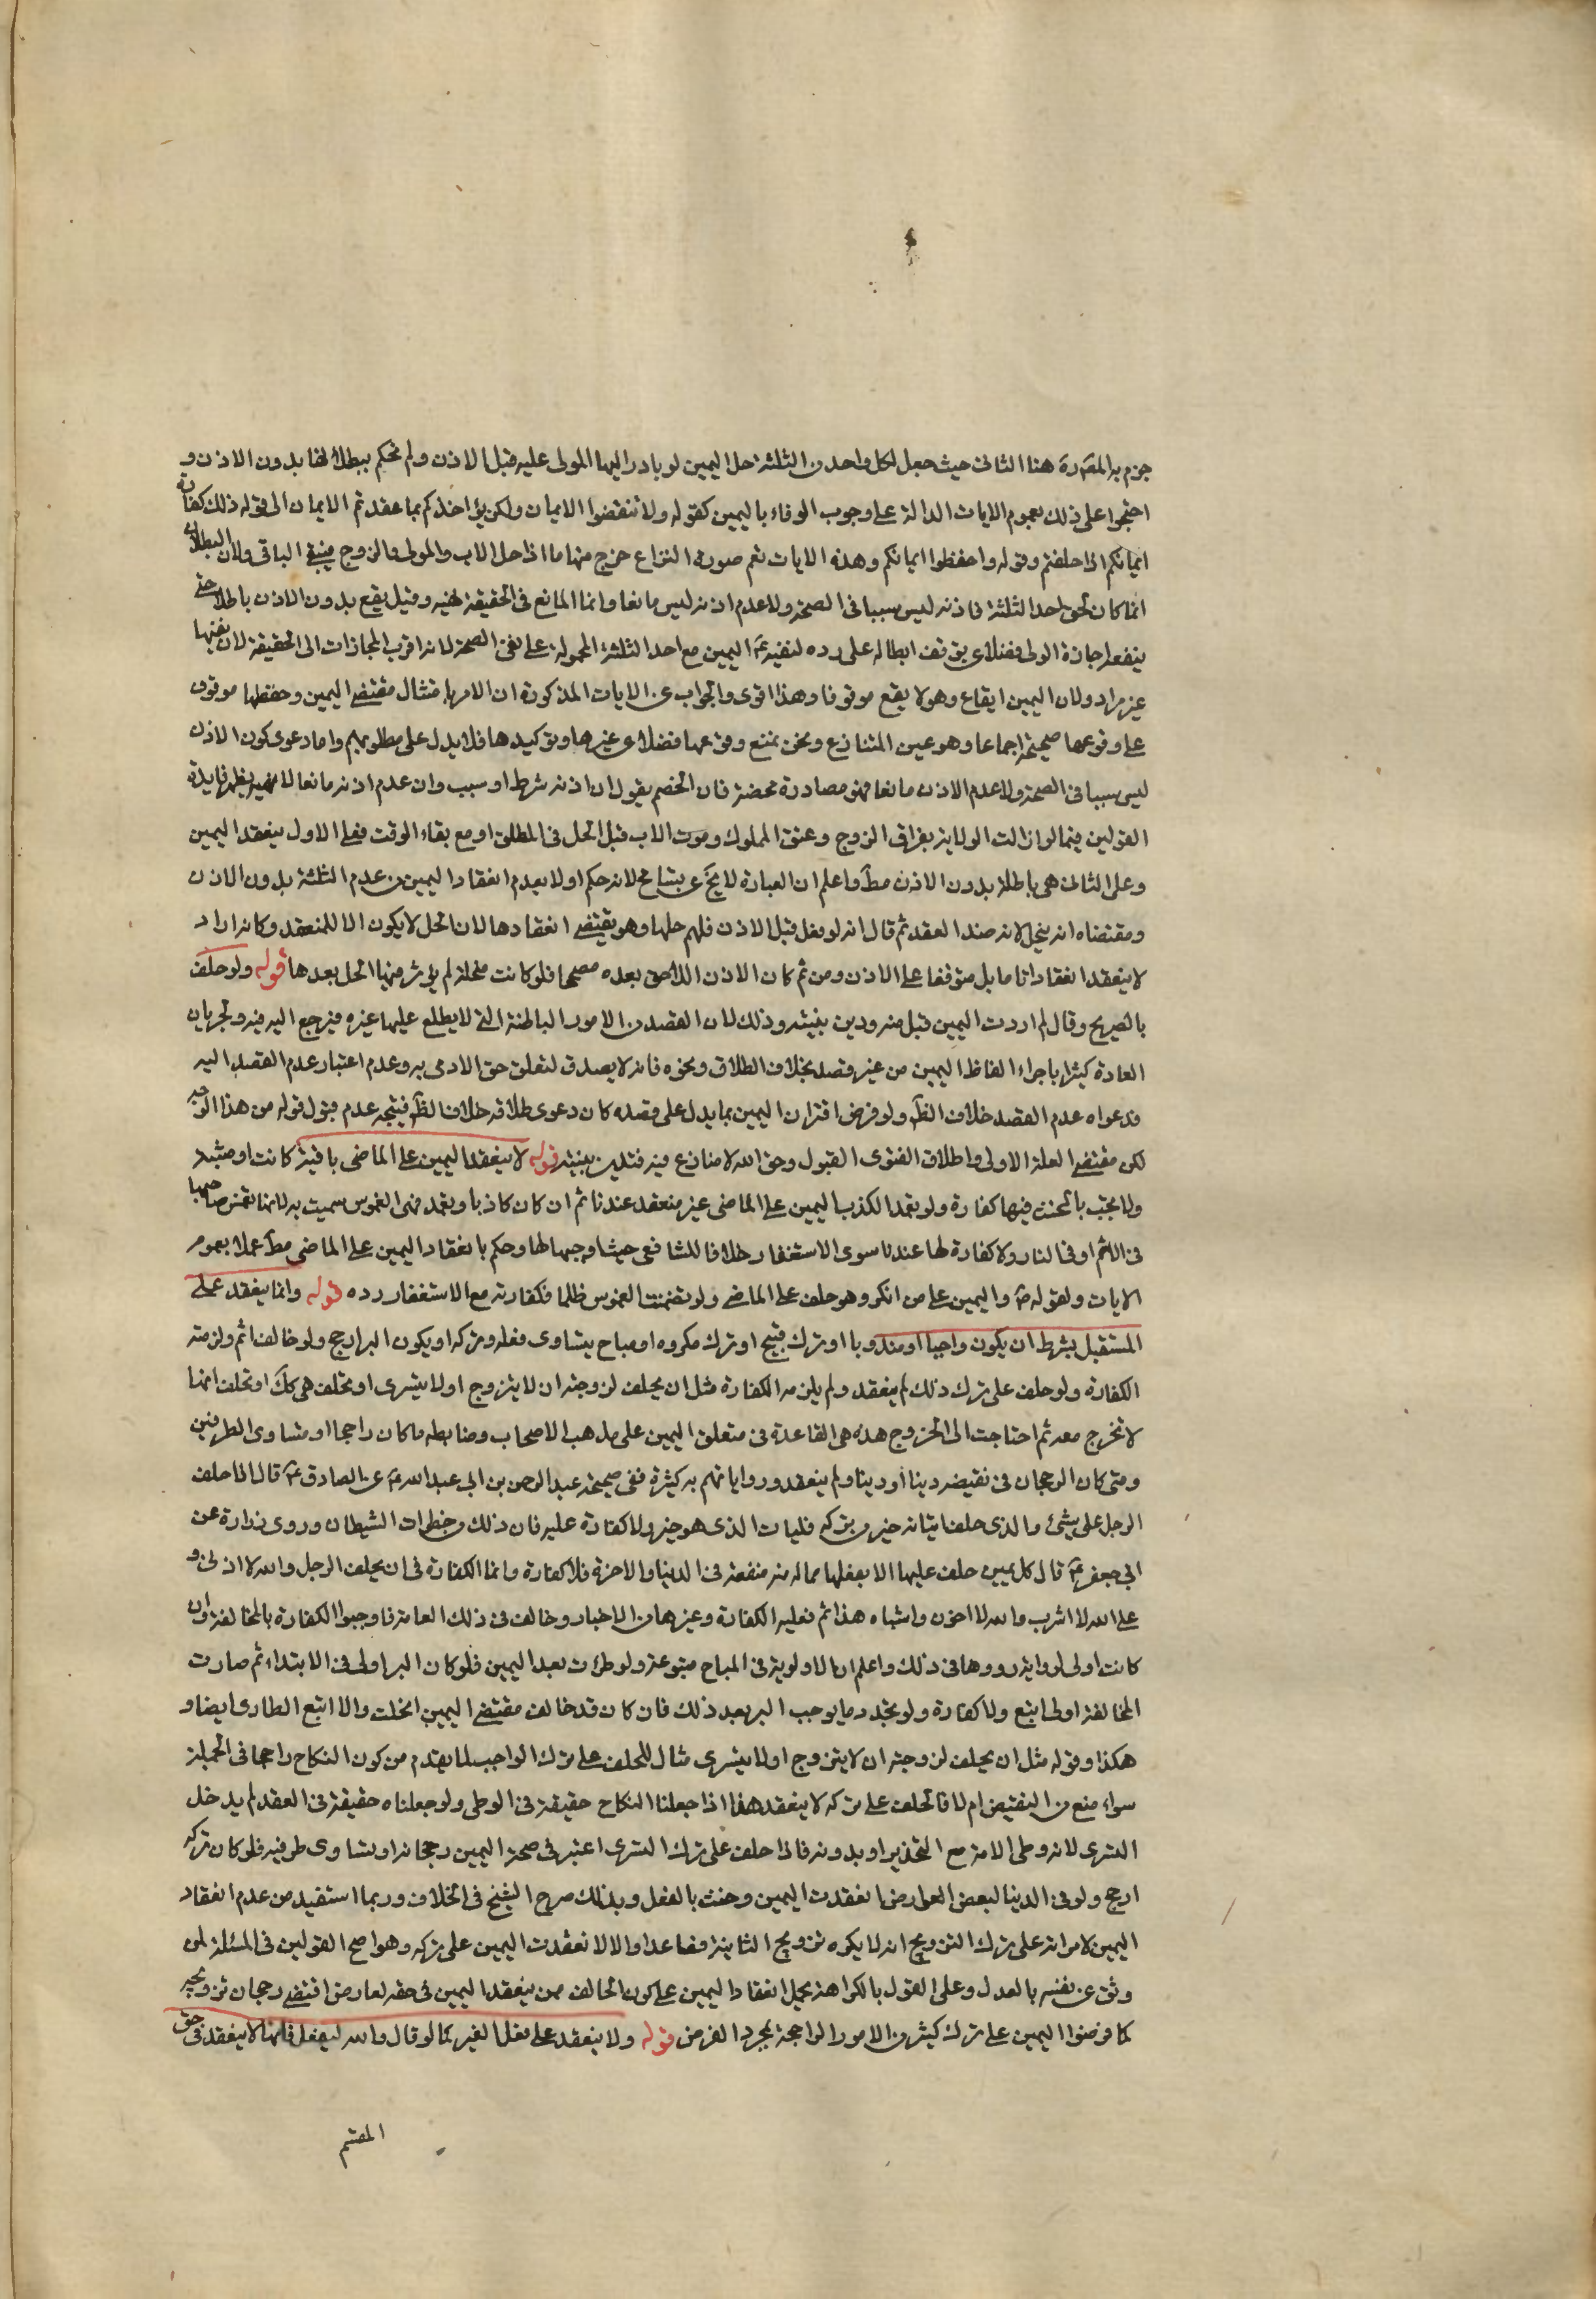 جزم به المصره هنا الثانى حيث جعل لكل واحد من الثلثة حل اليمين لو بادر اليها المولى عليه قبل الاذن ولم نحكم ببطلانها بدون الاذن و
احتجوا على ذلك بعموم الايات الدالة على وجوب الوفاء باليمين كقوله ولا تنقضوا الايمان ولكن يؤاخذكم بما عقدتم الايمان الى قوله ذلك كفارة
ايمانكم اذا حلفتم وقوله واحفظوا ايمانكم وهذه الايات تعم صورة النزاع خرج منها ما اذا حل الاب والمولى والزوج فيبقى الباقى ولان البطلان
انما كان لحق احد الثلثة فاذنه ليس سببا فى الصحة ولا عدم اذنه ليس مانعا وانما المانع فى الحقيقة نهيه وقيل يقع بدون الاذن باطلا حتى
ينفعه اجازة الولى فضلا عن توقف ابطاله على رده لنفيه ع اليمين مع احد الثلثة المحمولة على نفى الصحة لانه اقرب المجازات الى الحقيقة لان نفيها
غير مراد ولان اليمين ايقاع وهو لا يقع موقوفا وهذا اقوى والجواب عن الايات المذكورة ان الامر بامتثال مقتضى اليمين وحفظها موقوف
على وقوعها صحيحة اجماعا وهو عين المتنازع ونحن نمنع وقوعها فضلا عن غيرها وتوكيدها فلا يدل على مطلوبهم واما دعوى كون الاذن
ليس سببا فى الصحة ولا عدم الاذن مانعا فهو مصادرة محضة فان الخصم يقول ان اذنه شرط او سبب وان عدم اذنه مانعا لا نهيه يظهر فايدة
القولين فيما لو زالت الولاية بفراق الزوج وعتق المملوك وموت الاب قبل الحل فى المطلق او مع بقاء الوقت فعلى الاول ينعقد اليمين
وعلى الثانى هى باطلة بدون الاذن مطا واعلم ان العبارة لا يخ عن تسامح لانه حكم اولا بعدم انعقاد اليمين من عدم الثلثة بدون الاذن
ومقتضاه انه ينحل لانه ضد العقد ثم قال انه لو فعل قبل الاذن فلهم حلها وهو يقتضى انعقادها لان الحل لا يكون الا للمنعقد وكانه اراد
لا ينعقد انعقادا تاما بل متوقفا على الاذن ومن ثم كان الاذن اللاحق بعده مصححا فلو كانت منحلة لم يؤثر فيها الحل بعدها قوله ولو حلف
بالصريح وقال لم اردت اليمين قبل منه ودين بنيته وذلك لان القصد من الامور الباطنة التى لا يطلع عليها غيره فيرجع اليه فيه ولجريان
العادة كثيرا باجراء الفاظ اليمين من غير قصد بخلاف الطلاق ونحوه فانه لا يصدق لتعلق حق الادمى به وعدم اعتبار عدم القصد اليه
فدعواه عدم القصد خلاف الظ ولو فرض اقتران اليمين بما يدل على قصده كان دعوى طلاقه خلاف الظ فيتجه عدم قبول قوله من هذا الوجه
لكن مقتضى العلة الاولى واطلاق الفتوى القبول وحق الله لا منازع فيه فتدين بنيته قوله لا ينعقد اليمين على الماضى نافية كانت او مثبتة
ولا يجب بالحنث فيها كفارة ولو تعمد الكذب اليمين على الماضى غير منعقد عندنا ثم ان كان كاذبا وتعمد فهى الغموس سميت به لانها تغمس صاحبها
فى الاثم او فى النار ولا كفارة لها عندنا سوى الاستغفار خلافا للشافعى حيث اوجبها لها وحكم بانعقاد اليمين على الماضى مطا عملا بعموم
الايات ولقوله ص واليمين على من انكر وهو حلف على الماضى ولو تضمنت الغموس ظلما فكفارته مع الاستغفار رده قوله وانما ينعقد على
المستقبل بشرط ان يكون واجبا او مندوبا او ترك قبيح او ترك مكروه او مباح يتساوى فعله وتركه او يكون البر ارجح ولو خالف اثم ولزمته
الكفارة ولو حلف على ترك ذلك لم ينعقد ولم يلزمه الكفارة مثل ان يحلف لزوجته ان لا يتزوج او لا يتسرى او تحلف هى كك او تحلف انها
لا تخرج معه ثم احتاجت الى الخروج هذه هى القاعدة فى متعلق اليمين على مذهب الاصحاب وضابطه ما كان راجحا او متساوى الطرفين
ومتى كان الرجحان فى نقيضه دينا او دينا ولم ينعقد ورواياتهم به كثيرة ففى صحيحة عبد الرحمن بن ابى عبد الله ع عن الصادق ع قال اذا حلف
الرجل على شئ والذى حلف اتيانه خير من تركه فليات الذى هو خير ولا كفارة عليه فان ذلك من خطرات الشيطان وروى زرارة عن
ابى جعفر ع قال كل يمين حلف عليها الا يفعلها مما له فيه منفعة فى الدنيا والاخرة فلا كفارة وانما الكفارة فى ان يحلف الرجل والله لا ازنى و
على الله لا اشرب والله لا اخون واشباه هذا ثم فعليه الكفارة وغيرها من الاخبار وخالف فى ذلك العامة فاوجبوا الكفارة بالمخالفة وان
كانت اولى لرواية رووها فى ذلك واعلم ان الاولوية فى المباح متبوعة ولو طرئت بعد اليمين فلو كان البر اولى فى الابتداء ثم صارت
المخالفة اولى اتبع ولا كفارة ولو تجدد ما يوجب البر بعد ذلك فان كان قد خالف مقتضى اليمين انحلت والا اتبع الطارى ايضا و
هكذا وقوله مثل ان يحلف لزوجته ان لا يتزوج او لا يتسرى مثال للحلف على ترك الواجب لما تقدم من كون النكاح راجحا فى الجملة
سواء منع من النقيض ام لا فالحلف على تركه لا ينعقد هذا اذا جعلنا النكاح حقيقة فى الوطى ولو جعلناه حقيقة فى العقد لم يدخل
التسرى لانه وطى الامة مع التخدير او بدونه فاذا حلف على ترك التسرى اعتبر فى صحة اليمين رجحانه او تساوى طرفيه فلو كان تركه
ارجح ولو فى الدنيا لبعض العوارض انعقدت اليمين وحنث بالفعل وبذلك صرح الشيخ فى الخلاف وربما استفيد من عدم انعقاد
اليمين لامراته على ترك التزويج انه لا يكره تزويج الثانية فصاعدا والا لانعقدت اليمين على تركه وهو اصح القولين فى المسئلة لمن
وثق عن نفسه بالعدل وعلى القول بالكراهة يحمل انعقاد اليمين على كون الحالف ممن ينعقد اليمين فى حقه لعارض اقتضى رجحان تزويجه
كما فرضوا اليمين على ترك كثير من الامور الراجحة لمجرد الفرض قوله ولا ينعقد على فعل الغير كما لو قال والله ليفعل فانها لا ينعقد فى حق
المقسم